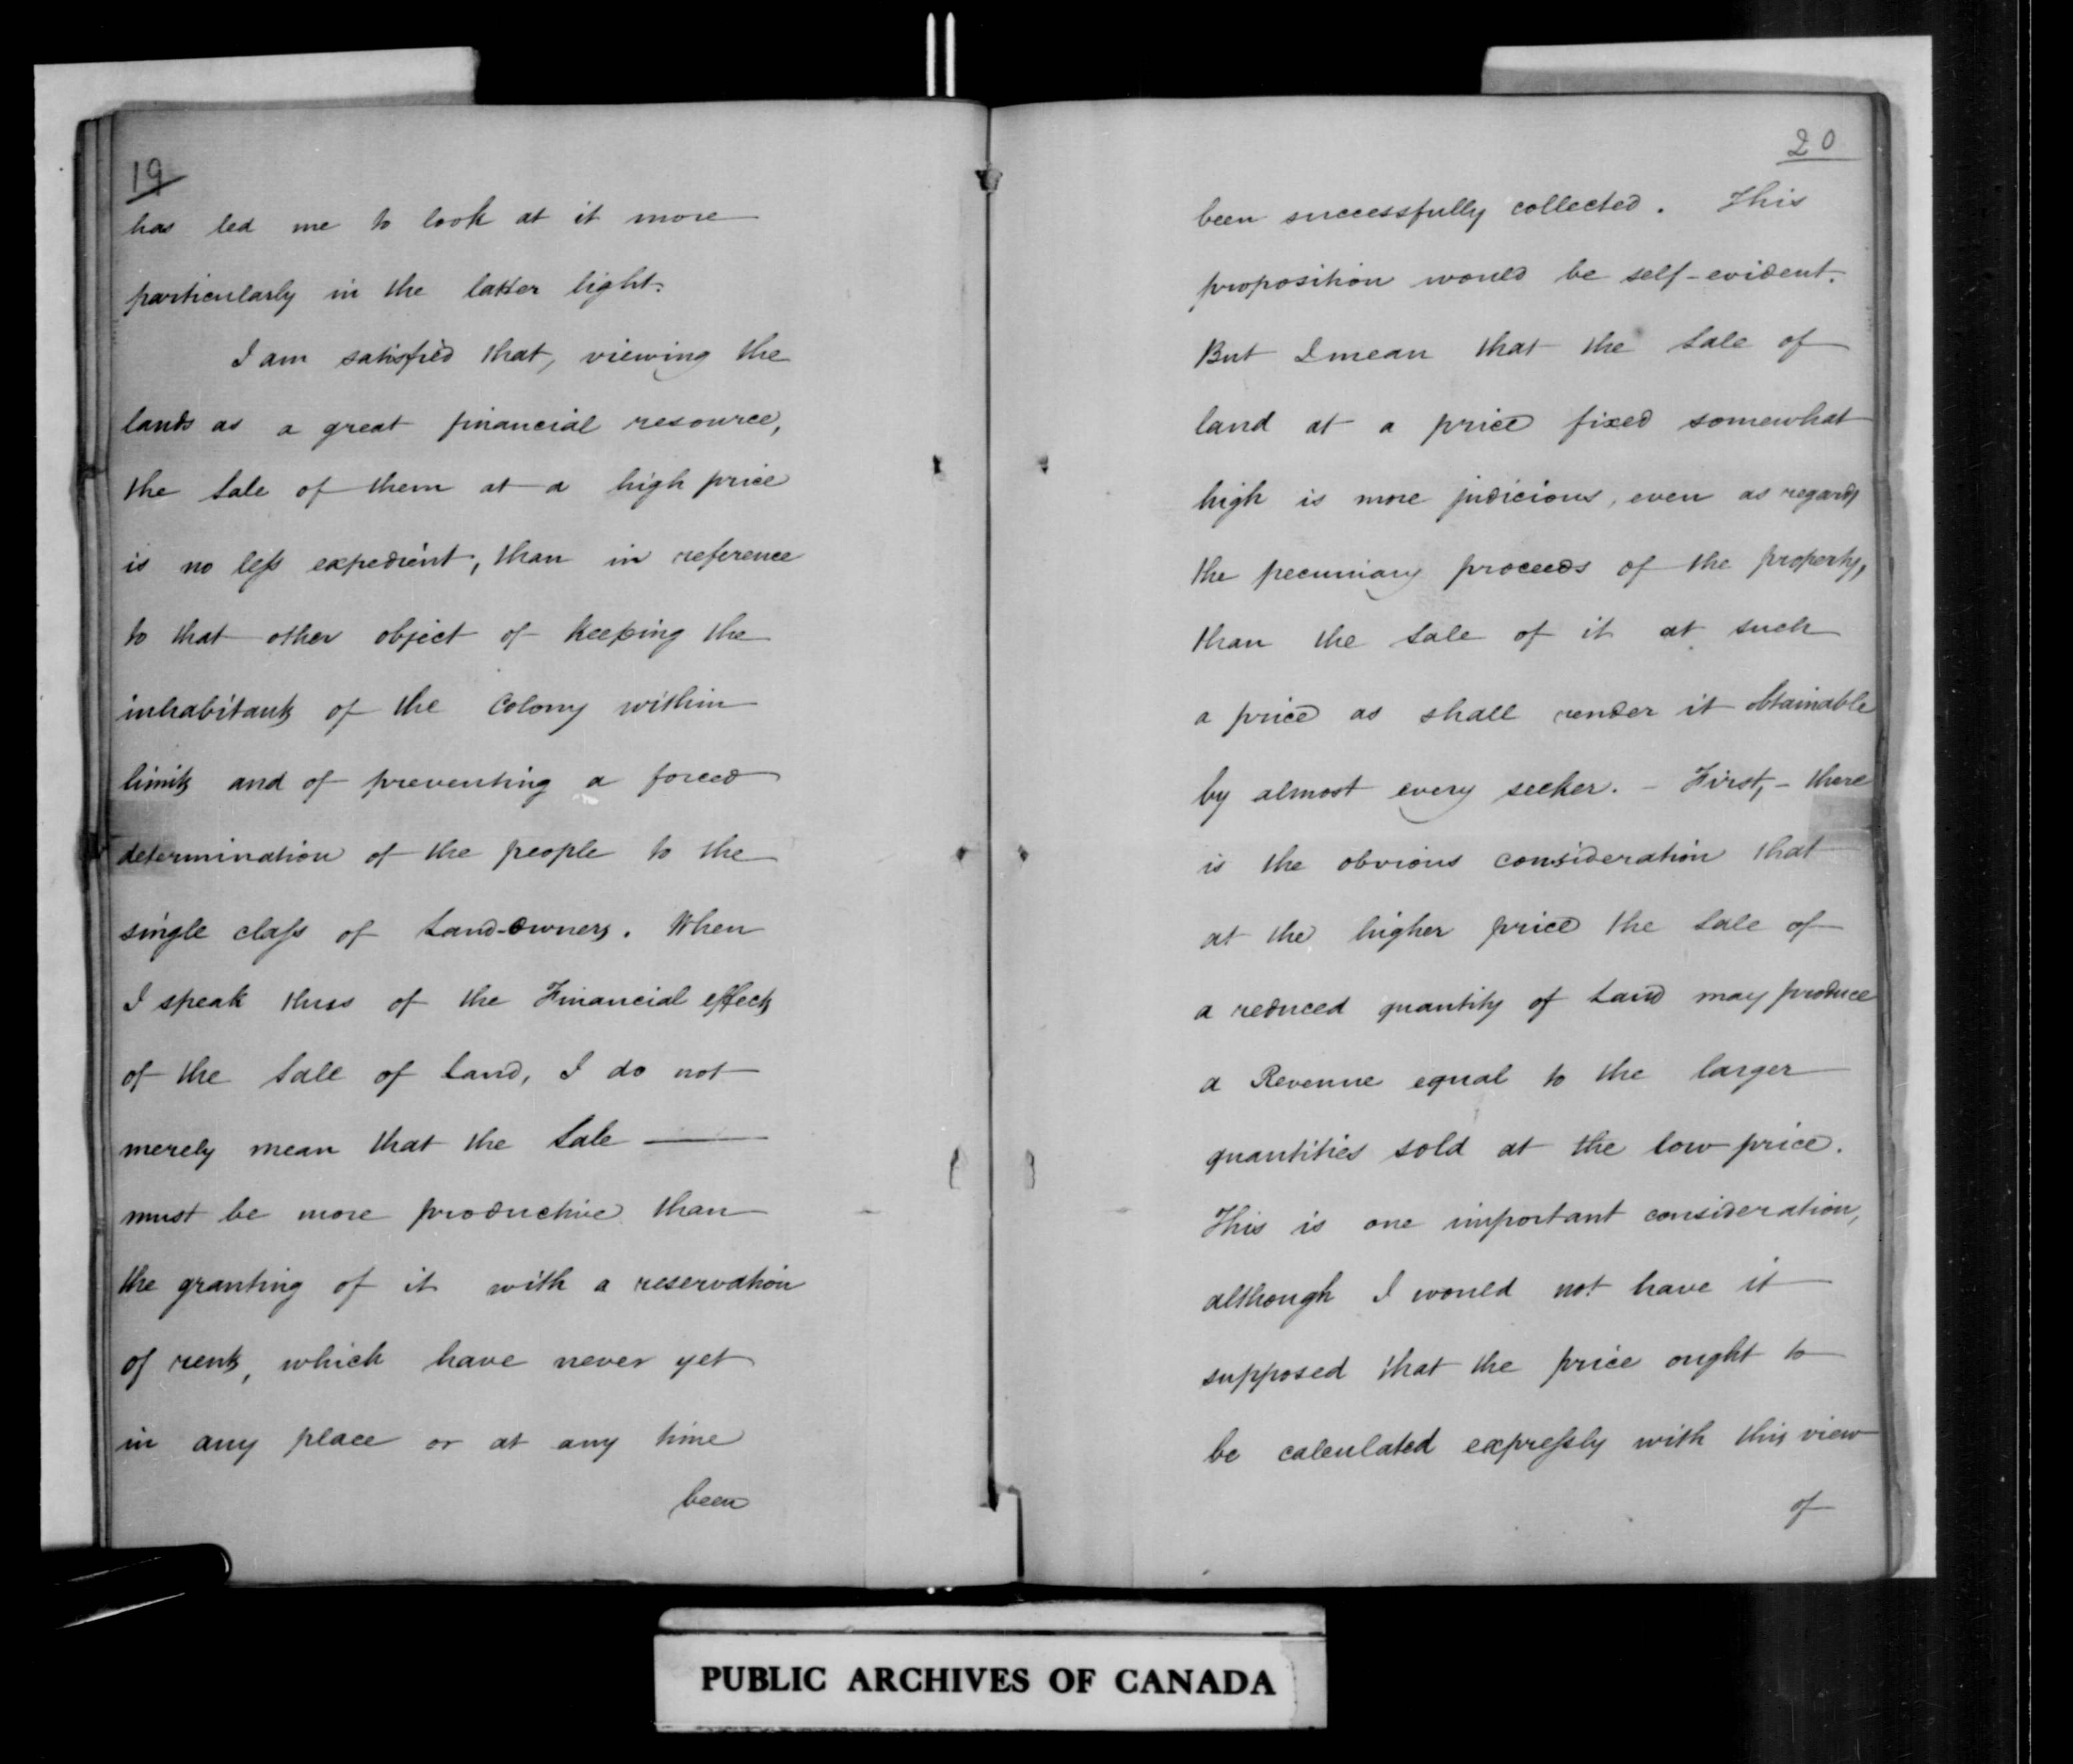 19
has led me to look at it more
particularly in the latter light.
I am satisfied that, viewing the
lands as a great financial resource,
the Sale of them at a high price
is no less expedient, than in reference
to that other object of keeping the
inhabitants of the Colony within
limits and of preventing a forced
determination of the people to the
single class of Land-Owners. When
I speak thus of the Financial effects
of the Sale of Land, I do not
merely mean that the Sale
must be more productive than
the granting of it with a reservation
of rents, which have never yet
in any place or at any time
been
20
been successfully collected. This
proposition would be self-evident.
But I mean that the Sale of
land at a price fixed somewhat
high is more judicious, even as regards
the pecuniary proceeds of the property,
than the Sale of it at such
a price as shall render it obtainable
by almost every seeker. - First, - there
is the obvious consideration that
at the higher price the Sale of
a reduced quantity of Land may produce
a Revenue equal to the larger
quantities sold at the low price.
This is one important consideration,
although I would not have it
supposed that the price ought to
be calculated expressly with this view
of
PUBLIC ARCHIVES OF CANADA